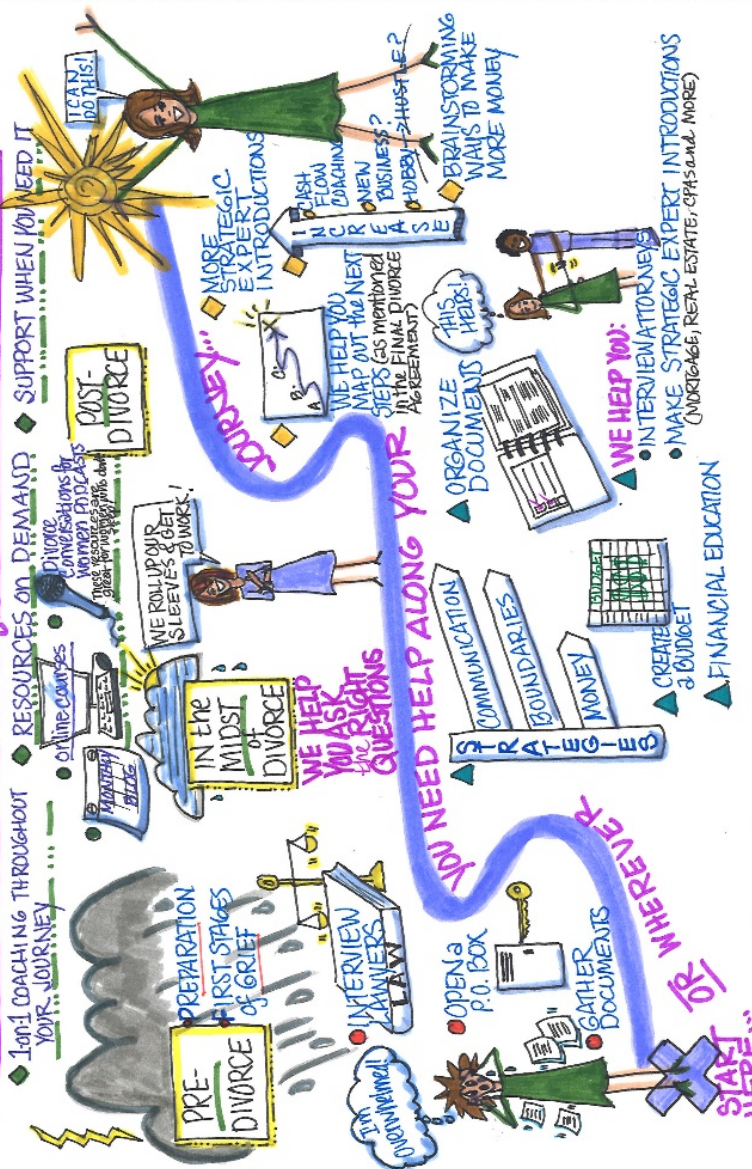 1-on-1 COACHING THROUGHOUT
YOUR JOURNEY
RESOURCES on DEMAND
SUPPORT WHEN YOU NEED IT
MONTHLY
BLOG
Online courses
Divorce
Conversations for
Women PODCASTS
These resources are
great for women who don't
PRE-
DIVORCE
PREPARATION
FIRST STAGES
of GRIEF
I'm
overwhelmed!
INTERVIEW
LAWYERS
LAW
OPEN a
P.O. BOX
GATHER
DOCUMENTS
START
HERE...
OR WHEREVER
YOU NEED HELP ALONG YOUR
JOURNEY...
IN the
MIDST
of
DIVORCE
WE HELP
YOU ASK
the RIGHT
QUESTIONS
WE ROLL UP OUR
SLEEVES & GET
TO WORK!
STRATEGIES
COMMUNICATION
BOUNDARIES
MONEY
CREATE
a BUDGET
BUDGET
FINANCIAL EDUCATION
ORGANIZE
DOCUMENTS
THIS
HELPS!
WE HELP YOU:
INTERVIEW ATTORNEYS
MAKE STRATEGIC EXPERT INTRODUCTIONS
(MORTGAGE, REAL ESTATE, CPAs and MORE)
POST-
DIVORCE
A
B
C
X
WE HELP YOU
MAP OUT the NEXT
STEPS (as mentioned
in the FINAL DIVORCE
AGREEMENT)
MORE
STRATEGIC
EXPERT
INTRODUCTIONS
INCREASE
CASH
FLOW
COACHING
NEW
BUSINESS?
HOBBY → HUSTLE?
BRAINSTORMING
WAYS TO MAKE
MORE MONEY
I CAN
DO THIS!